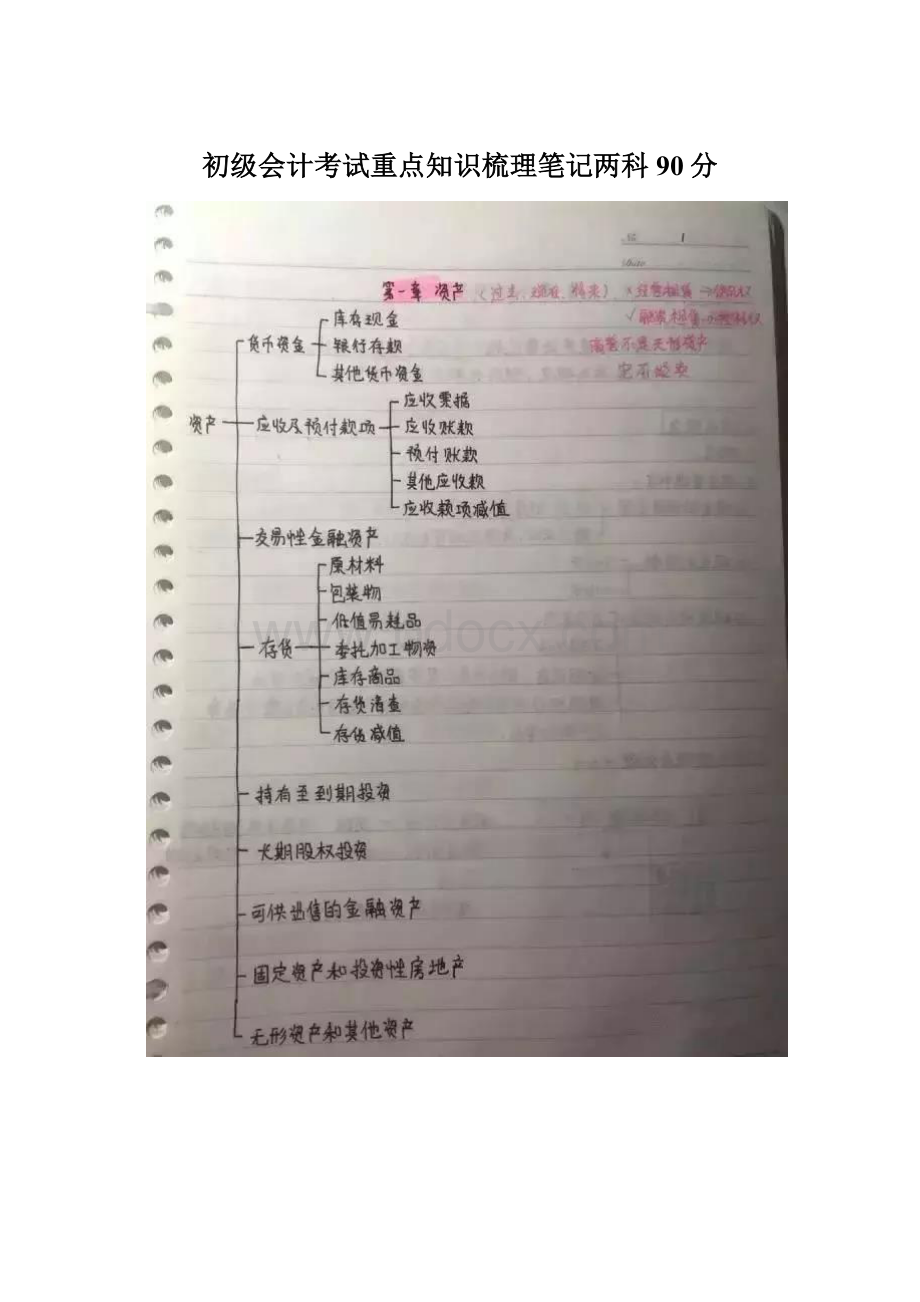 初级会计考试重点知识梳理笔记两科 90 分
1
第一章 资产 (过去、现在、将来) ×经营租赁→使用权
库存现金 √融资租赁→
货币资金 银行存款 商誉不是无形资产
其他货币资金
应收票据
资产 应收及预付款项 应收账款
预付账款
其他应收款
应收款项减值
交易性金融资产
原材料
包装物
低值易耗品
存货 委托加工物资
库存商品
存货清查
存货减值
持有至到期投资
长期股权投资
可供出售的金融资产
固定资产和投资性房地产
无形资产和其他资产